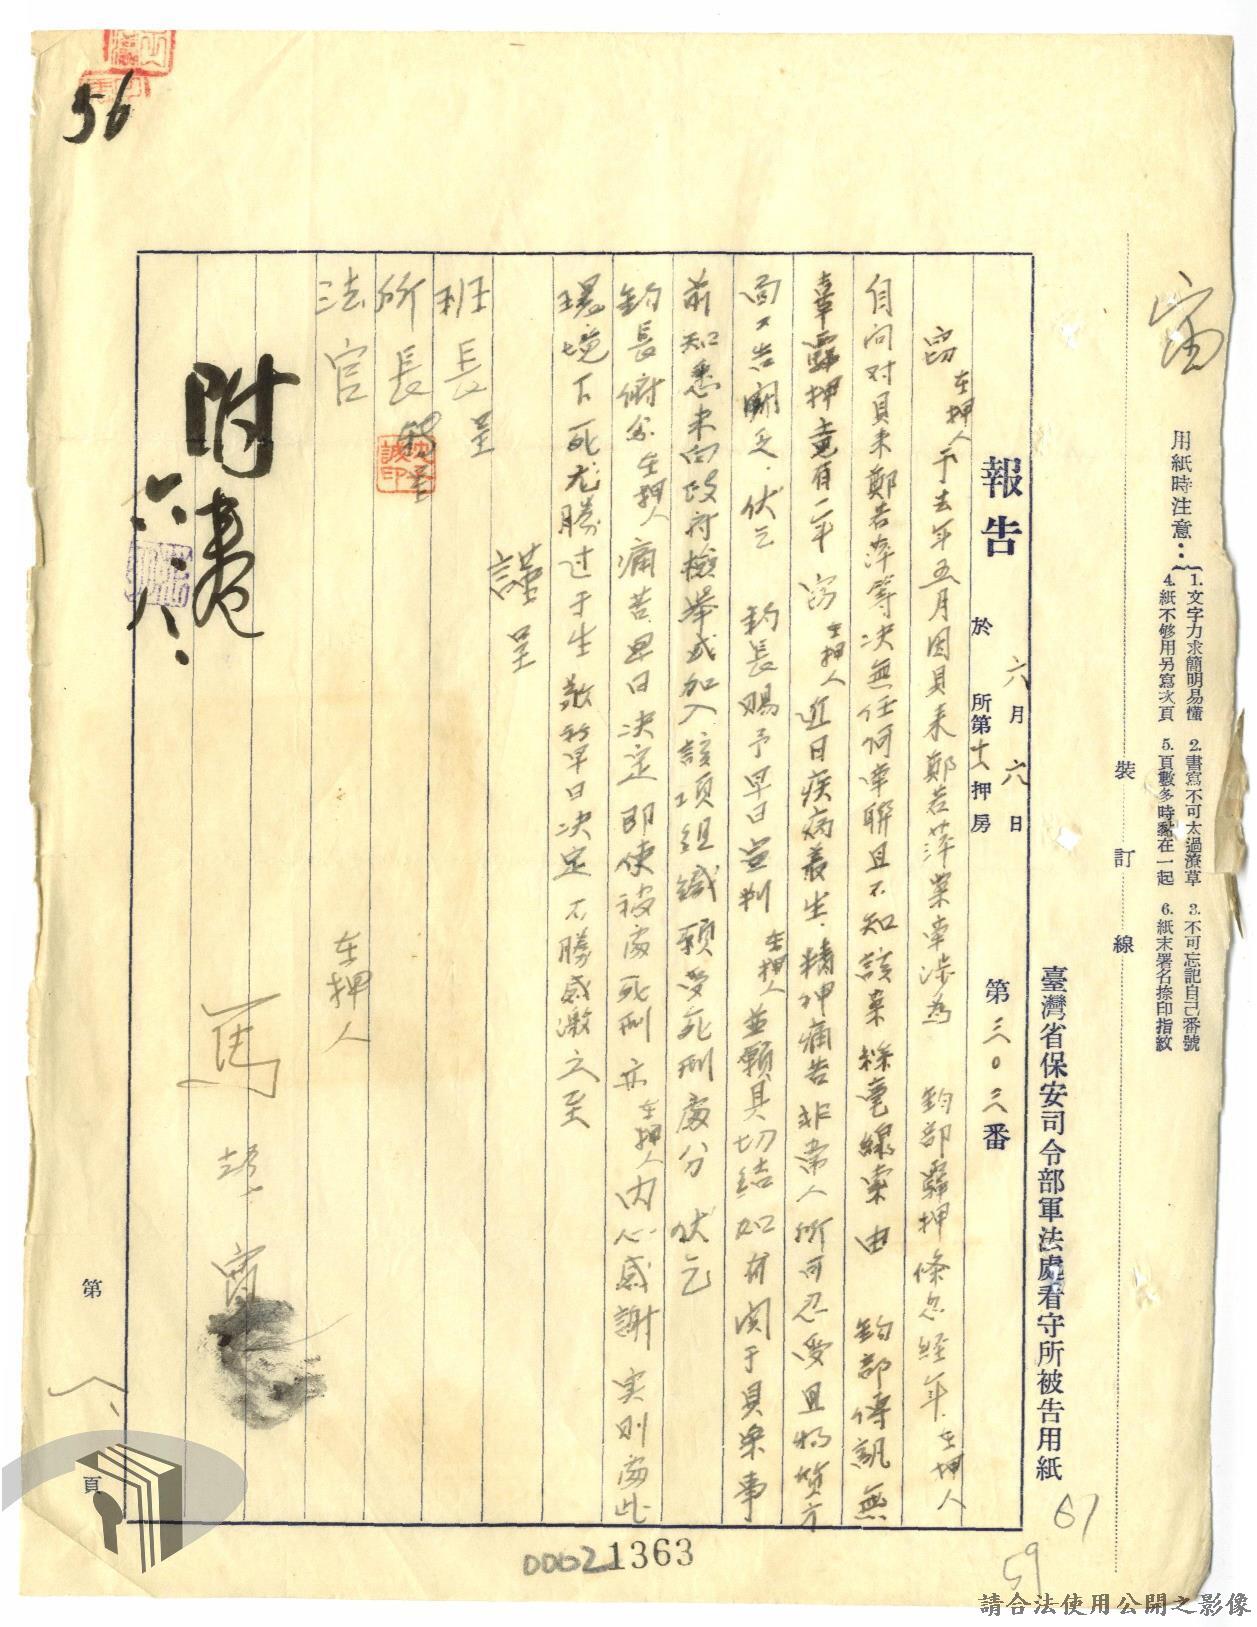 臺灣省保安司令部軍法處看守所被告用紙
用紙時注意：
1. 文字力求簡明易懂
2. 書寫不可太過潦草
3. 不可忘記自己番號
4. 紙不够用另寫次頁
5. 頁數多時黏在一起
6. 紙末署名捺印指紋
裝訂線
報告
六月六日
於 所第十六押房
第三〇三番
竊在押人于去年五月因貝來鄭若萍案牽涉為 鈞部羈押倏忽經年 在押人
自问对貝来鄭若萍等决無任何牽聯且不知該案絲毫線索由 鈞部傳訊無
辜羈押竟有二年 窃在押人近日疾病叢生 精神痛苦非常人所可忍受且物質方
面又告闕乏 伏乞 鈞長賜予早日宣判 在押人並願具切结如有関于貝案事
前知悉未向政府檢舉或加入該項组織願受死刑處分 伏乞
鈞長俯念在押人痛苦早日决定即使被處死刑亦在押人内心感謝 实则處此
環境下死尤勝过于生 敬祈早日决定不勝感激之至
謹呈
班長 呈
所長
法官
在押人
馬
附卷
六、八、
第八頁
56
61
59
00621363
請合法使用公開之影像